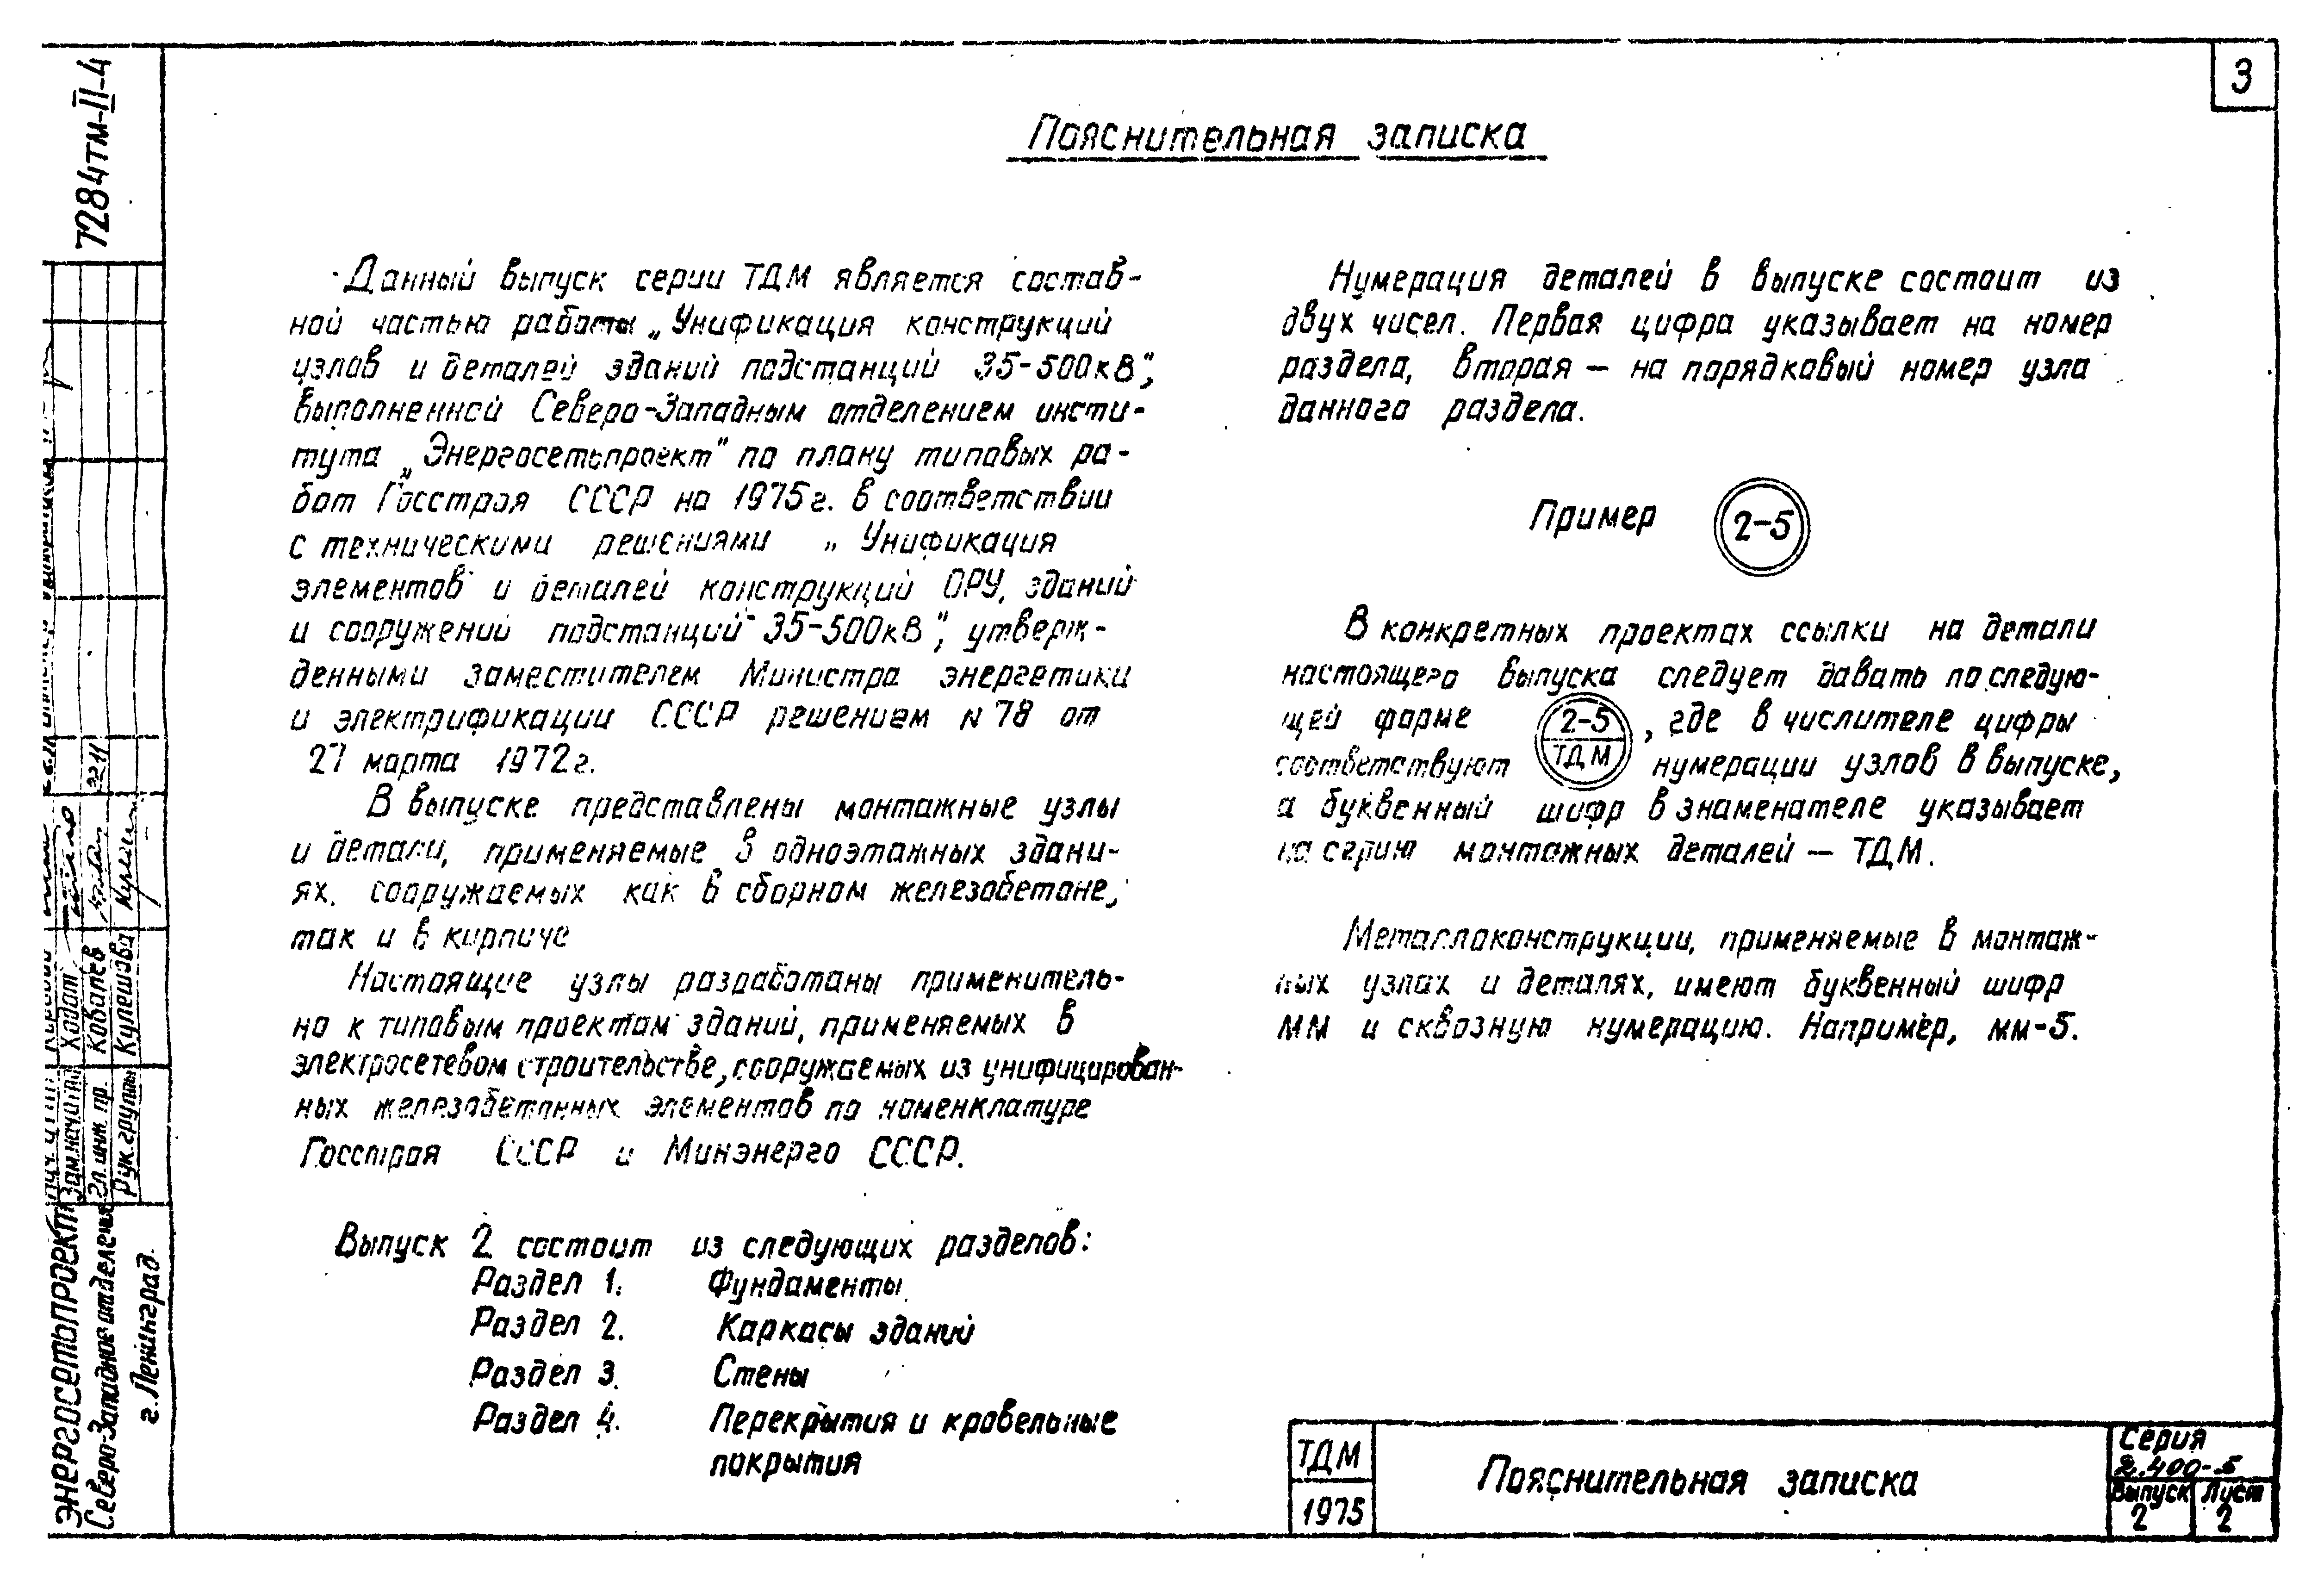 3
7284тм-II-4
Пояснительная записка
Данный выпуск серии ТДМ является состав-
ной частью работы „Унификация конструкций
узлов и деталей зданий подстанций 35-500кВ",
выполненной Северо-Западным отделением инсти-
тута „Энергосетьпроект" по плану типовых ра-
бот Госстроя СССР на 1975г. в соответствии
с техническими решениями „Унификация
элементов и деталей конструкций ОРУ, зданий
и сооружений подстанций 35-500кВ", утверж-
денными заместителем Министра энергетики
и электрификации СССР решением N 78 от
27 марта 1972г.
В выпуске представлены монтажные узлы
и детали, применяемые в одноэтажных здани-
ях, сооружаемых как в сборном железобетоне,
так и в кирпиче
Настоящие узлы разработаны применитель-
но к типовым проектам зданий, применяемых в
электросетевом строительстве, сооружаемых из унифицирован-
ных железобетонных элементов по номенклатуре
Госстроя СССР и Минэнерго СССР.
Выпуск 2 состоит из следующих разделов:
Раздел 1. Фундаменты
Раздел 2. Каркасы зданий
Раздел 3. Стены
Раздел 4. Перекрытия и кровельные
покрытия
Нумерация деталей в выпуске состоит из
двух чисел. Первая цифра указывает на номер
раздела, вторая – на порядковый номер узла
данного раздела.
Пример 2-5
В конкретных проектах ссылки на детали
настоящего выпуска следует давать по следую-
щей форме 2-5 , где в числителе цифры
соответствуют ТДМ нумерации узлов в выпуске,
а буквенный шифр в знаменателе указывает
на серию монтажных деталей – ТДМ.
Металлоконструкции, применяемые в монтаж-
ных узлах и деталях, имеют буквенный шифр
ММ и сквозную нумерацию. Например, мм-5.
Зам.нач.отд Ходот
Гл. инж. пр. Ковалев
Рук.группы Кулешова
ЭНЕРГОСЕТЬПРОЕКТ
Северо-Западное отделение
г. Ленинград.
ТДМ
1975
Пояснительная записка
Серия
2.400-5
Выпуск Лист
2 2